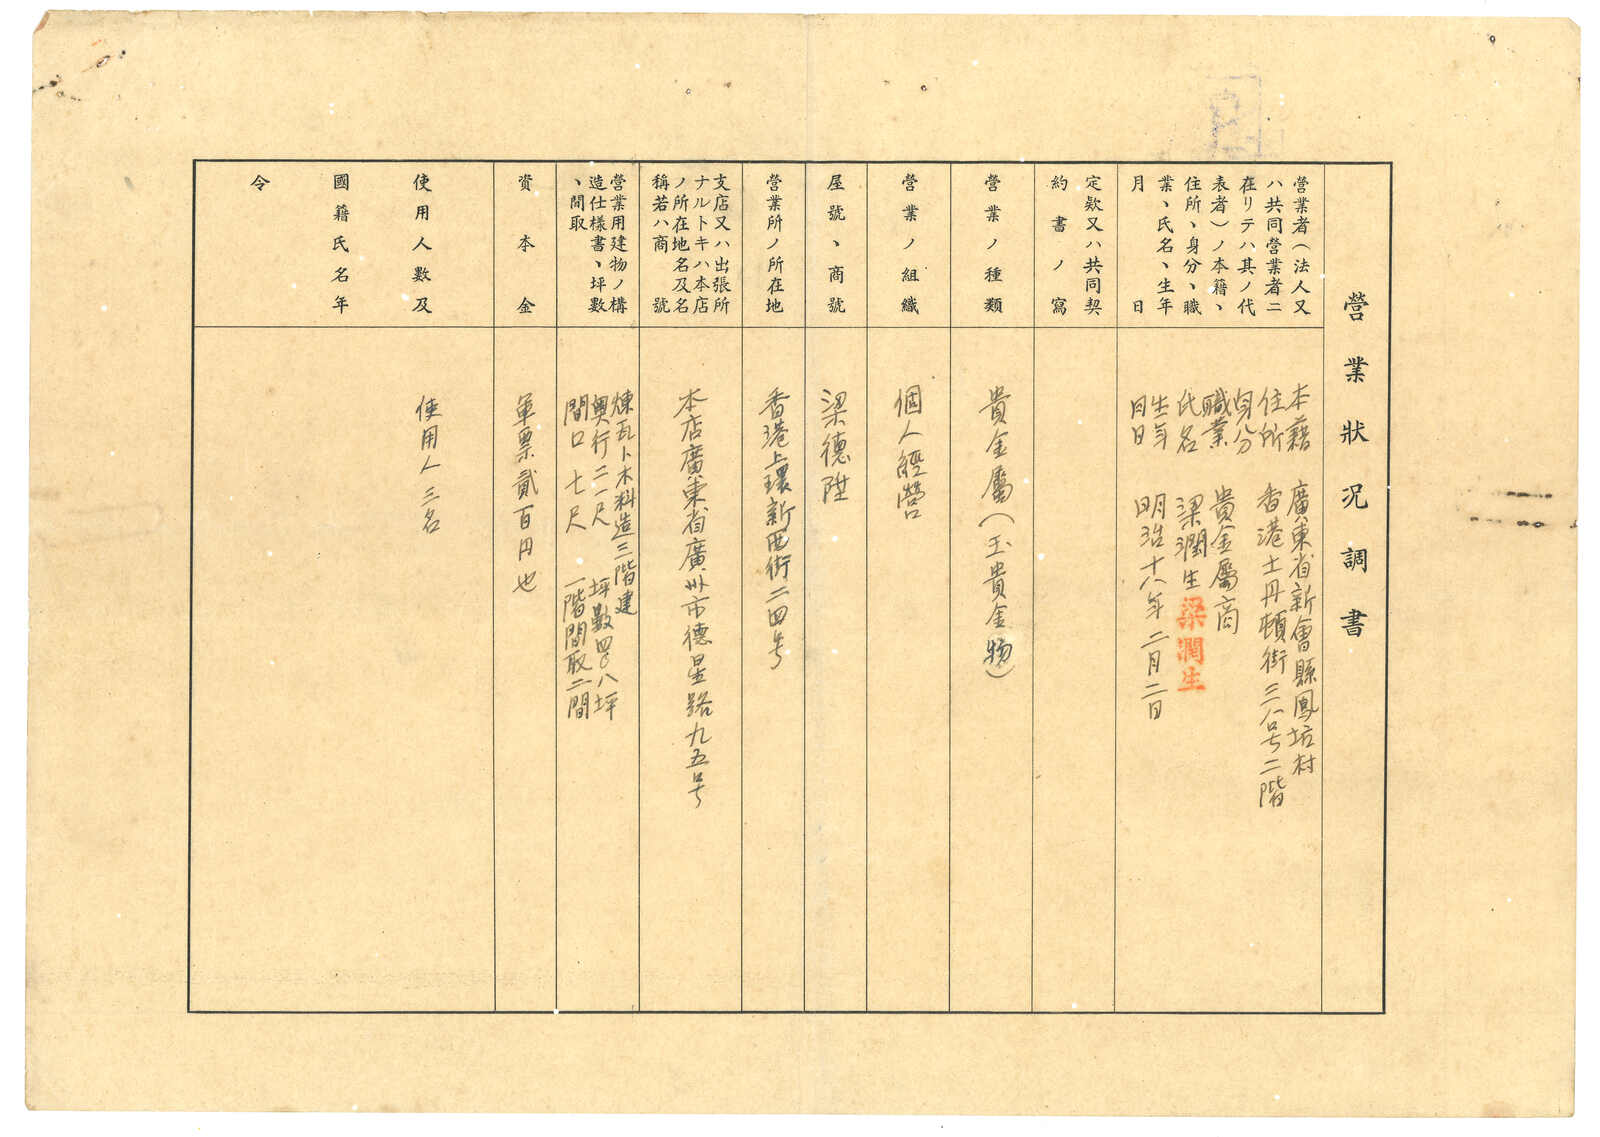 營業狀況調書
營業者(法人又
ハ共同營業者ニ
在リテハ其ノ代
表者)ノ本籍、
住所、身分、職
業、氏名、生年
月日
本籍 廣東省新會縣鳳坊村
住所 香港士丹頓街三八号二階
身分
職業 貴金屬商
氏名 梁潤生 梁潤生
生年
月日 明治十八年二月二日
定欵又ハ共同契
約書ノ寫
營業ノ種類
貴金屬(玉貴金物)
營業ノ組織
個人經營
屋號、商號
梁德陞
營業所ノ所在地
香港上環新西街二四号
支店又ハ出張所
ナルトキハ本店
ノ所在地名及名
稱若ハ商號
本店廣東省廣州市德星路九五号
營業用建物ノ構
造仕樣書、坪數
、間取
煉瓦ト木料造三階建
奧行二一尺 坪數四〇八坪
間口 七尺 一階間取二間
資本金
軍票貳百円也
使用人數及
國籍氏名年
令
使用人三名